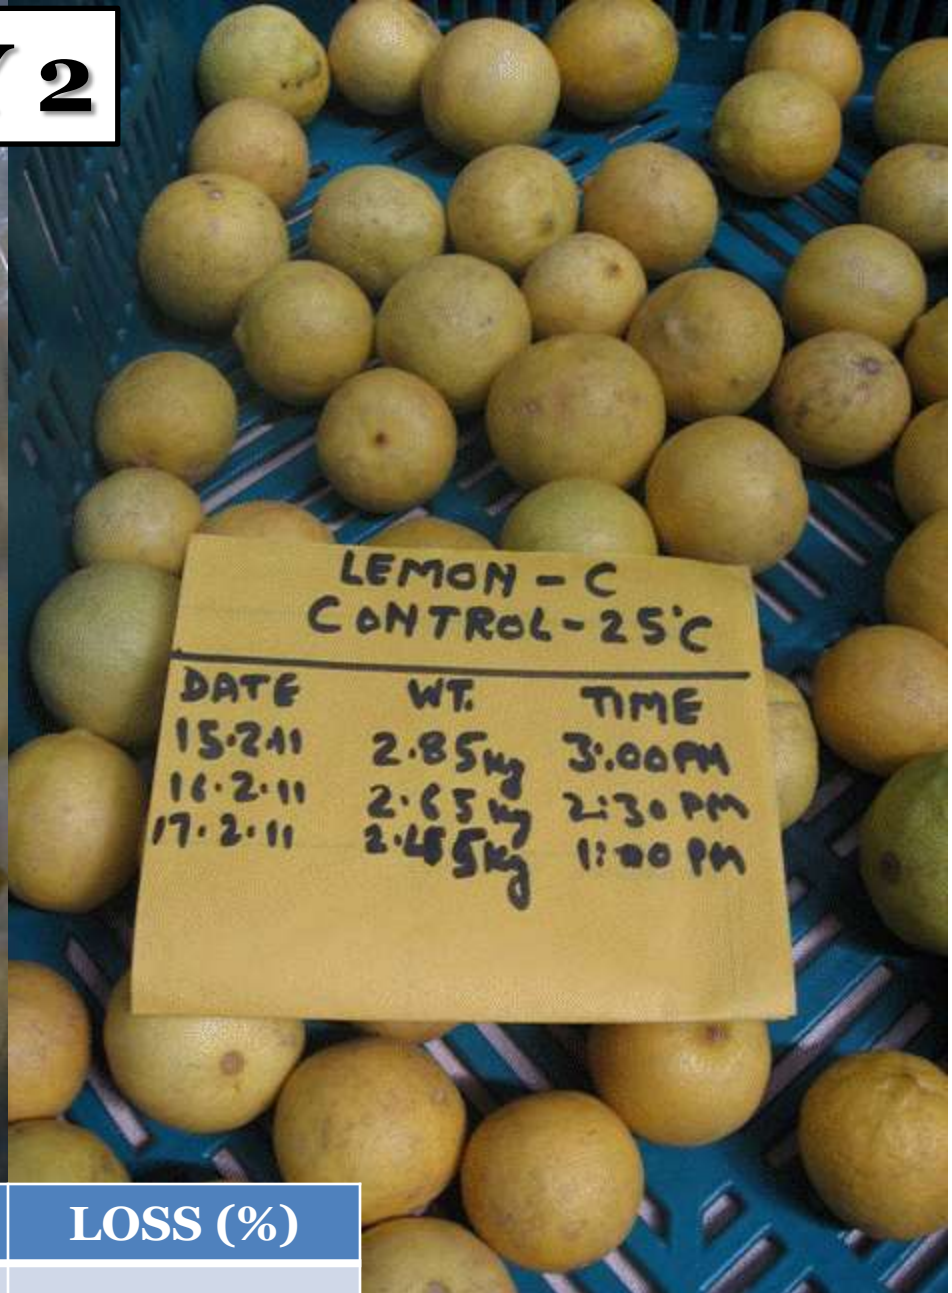 2
LEMON - C
CONTROL - 25°C
DATE WT. TIME
15.2.11 2.85kg 3:00 PM
16.2.11 2.65kg 2:30 PM
17.2.11 2.45kg 1:00 PM
LOSS (%)